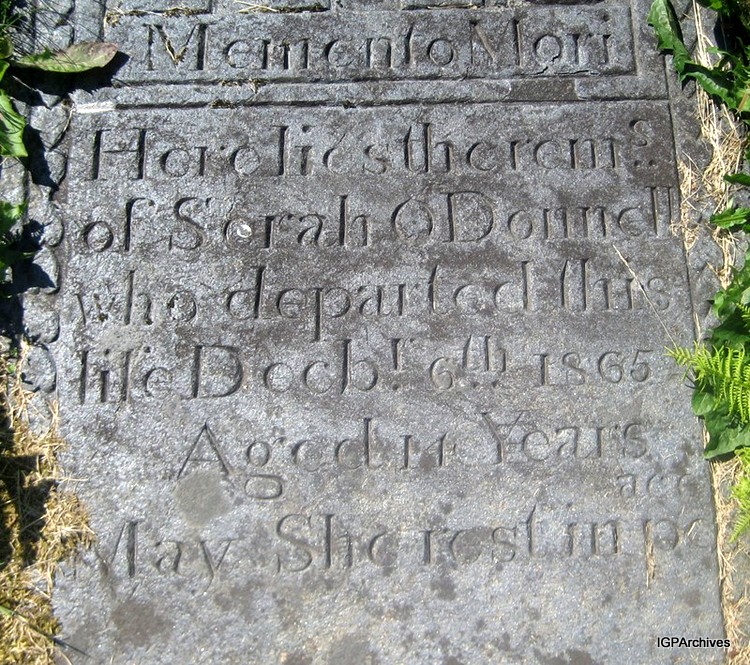 Memento Mori
Here lies the rems
of Serah O Donnell
who departed this
life Decbr 6th 1865
Aged 11 Years
ace
May She rest in pe
IGPArchives